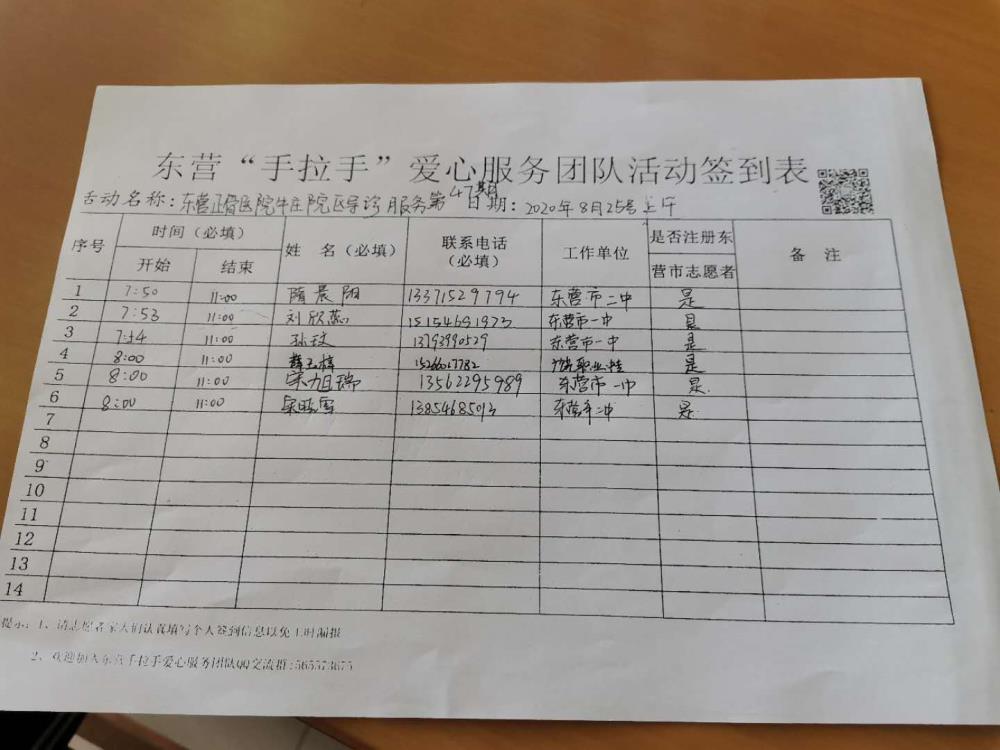 东营“手拉手”爱心服务团队活动签到表
活动名称:东营正骨医院牛庄院区导诊服务第47期 日期:2020年8月25号上午
序号 时间（必填） 姓 名（必填） 联系电话（必填） 工作单位 是否注册东营市志愿者 备 注
开始 结束
1 7:50 11:00 隋晨阳 13371529794 东营市二中 是
2 7:53 11:00 刘欣蕊 15154691973 东营市一中 是
3 7:54 11:00 孙玟 13793990529 东营市一中 是
4 8:00 11:00 薛玉梓 15266017782 是
5 8:00 11:00 宋旭瑞 13562295989 东营市一中 是
6 8:00 11:00 13854685013 东营市二中 是
7
8
9
10
11
12
13
14
提示:1、请志愿者家人们认真填写个人签到信息以免工时漏报
2、欢迎加入东营手拉手爱心服务团队QQ交流群:565573675